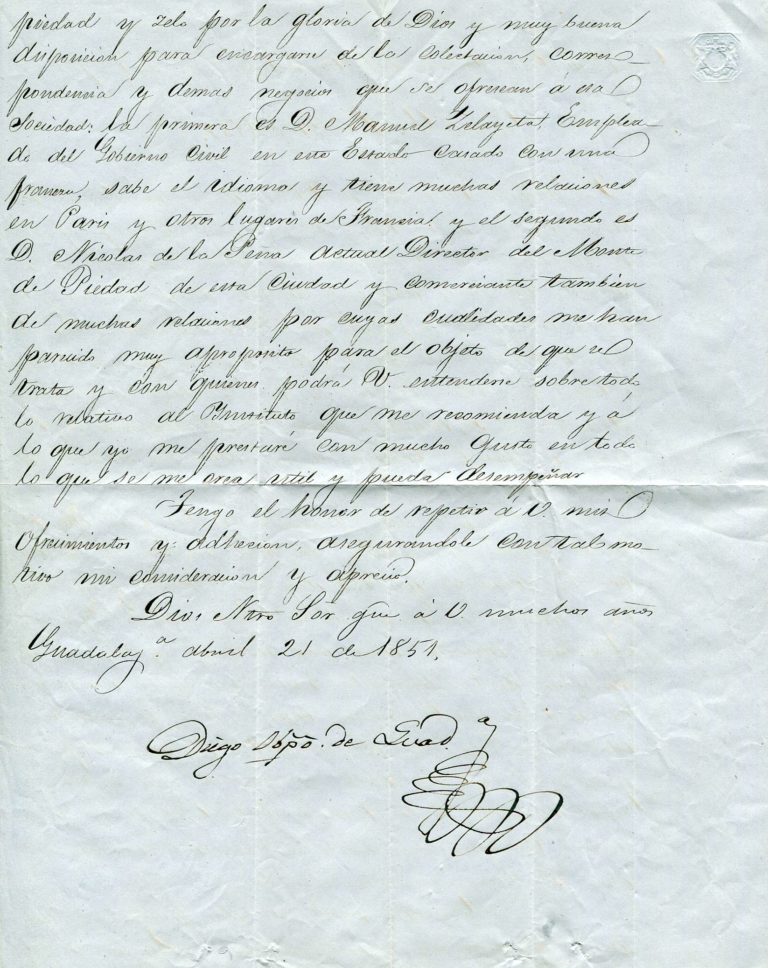 piedad y zelo por la gloria de Dios y muy buena
disposicion para encargarse de la colectacion, corres-
pondencia y demas negocios que se ofrescan á esa
Sociedad: la primera es D. Manuel Zelayeta, Emplea-
do del Gobierno Civil en este Estado casado con una
francesa, sabe el idioma y tiene muchas relaciones
en Paris y otros lugares de Francia y el segundo es
D. Nicolas de la Peña actual Director del Monte
de Piedad de esta Ciudad y comerciante tambien
de muchas relaciones por cuyas cualidades me han
parecido muy aproposito para el objeto de que se
trata y con quienes podrá V. entenderse sobre todo
lo relativo al Instituto que me recomienda y á
lo que yo me prestaré con mucho gusto en todo
lo que se me crea util y pueda desempeñar
Tengo el honor de repetir a V. mis
ofrecimientos y adhecion, asegurandole con tal mo-
tivo mi consideracion y aprecio.
Dios Ntro Sor gue á V. muchos años
Guadalaj.a abril 21 de 1851.
Diego Obpõ. de Guad.a